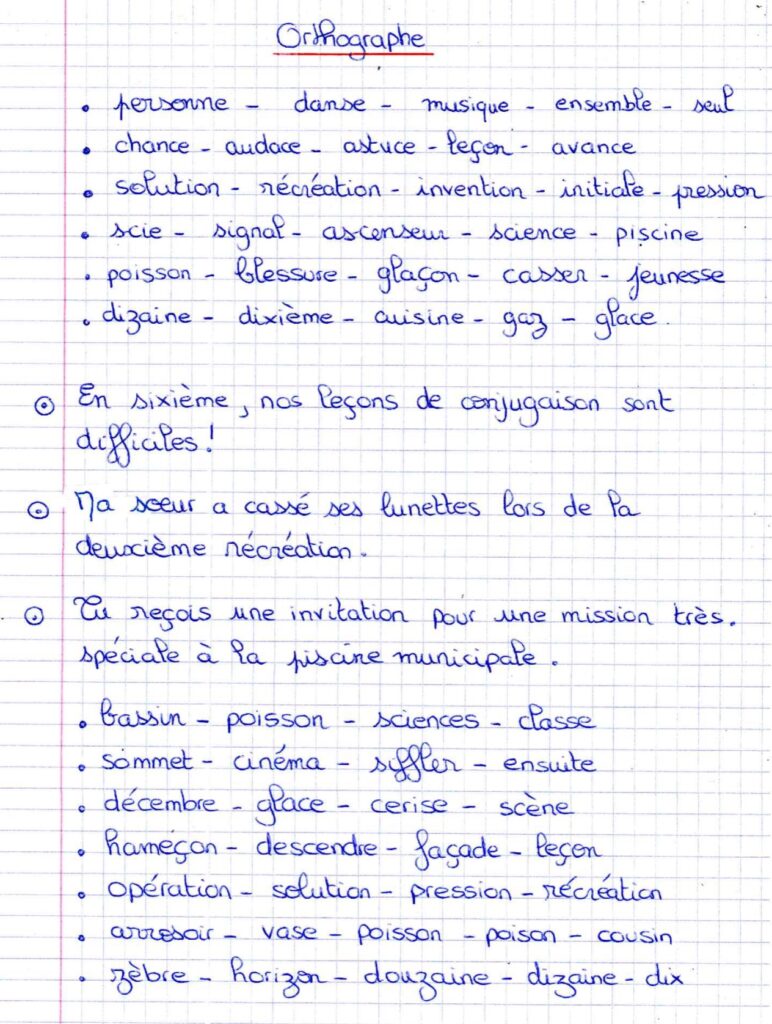 Orthographe
• personne - danse - musique - ensemble - seul
• chance - audace - astuce - leçon - avance
• solution - récréation - invention - initiale - pression
• scie - signal - ascenseur - science - piscine
• poisson - blessure - glaçon - casser - jeunesse
• dizaine - dixième - cuisine - gaz - glace.
⊙ En sixième, nos leçons de conjugaison sont
difficiles !
⊙ Ma soeur a cassé ses lunettes lors de la
deuxième récréation.
⊙ Tu reçois une invitation pour une mission très.
spéciale à la piscine municipale.
• bassin - poisson - sciences - classe
• sommet - cinéma - siffler - ensuite
• décembre - glace - cerise - scène
• hameçon - descendre - façade - leçon
• opération - solution - pression - récréation
• arrosoir - vase - poisson - poison - cousin
• zèbre - horizon - douzaine - dizaine - dix